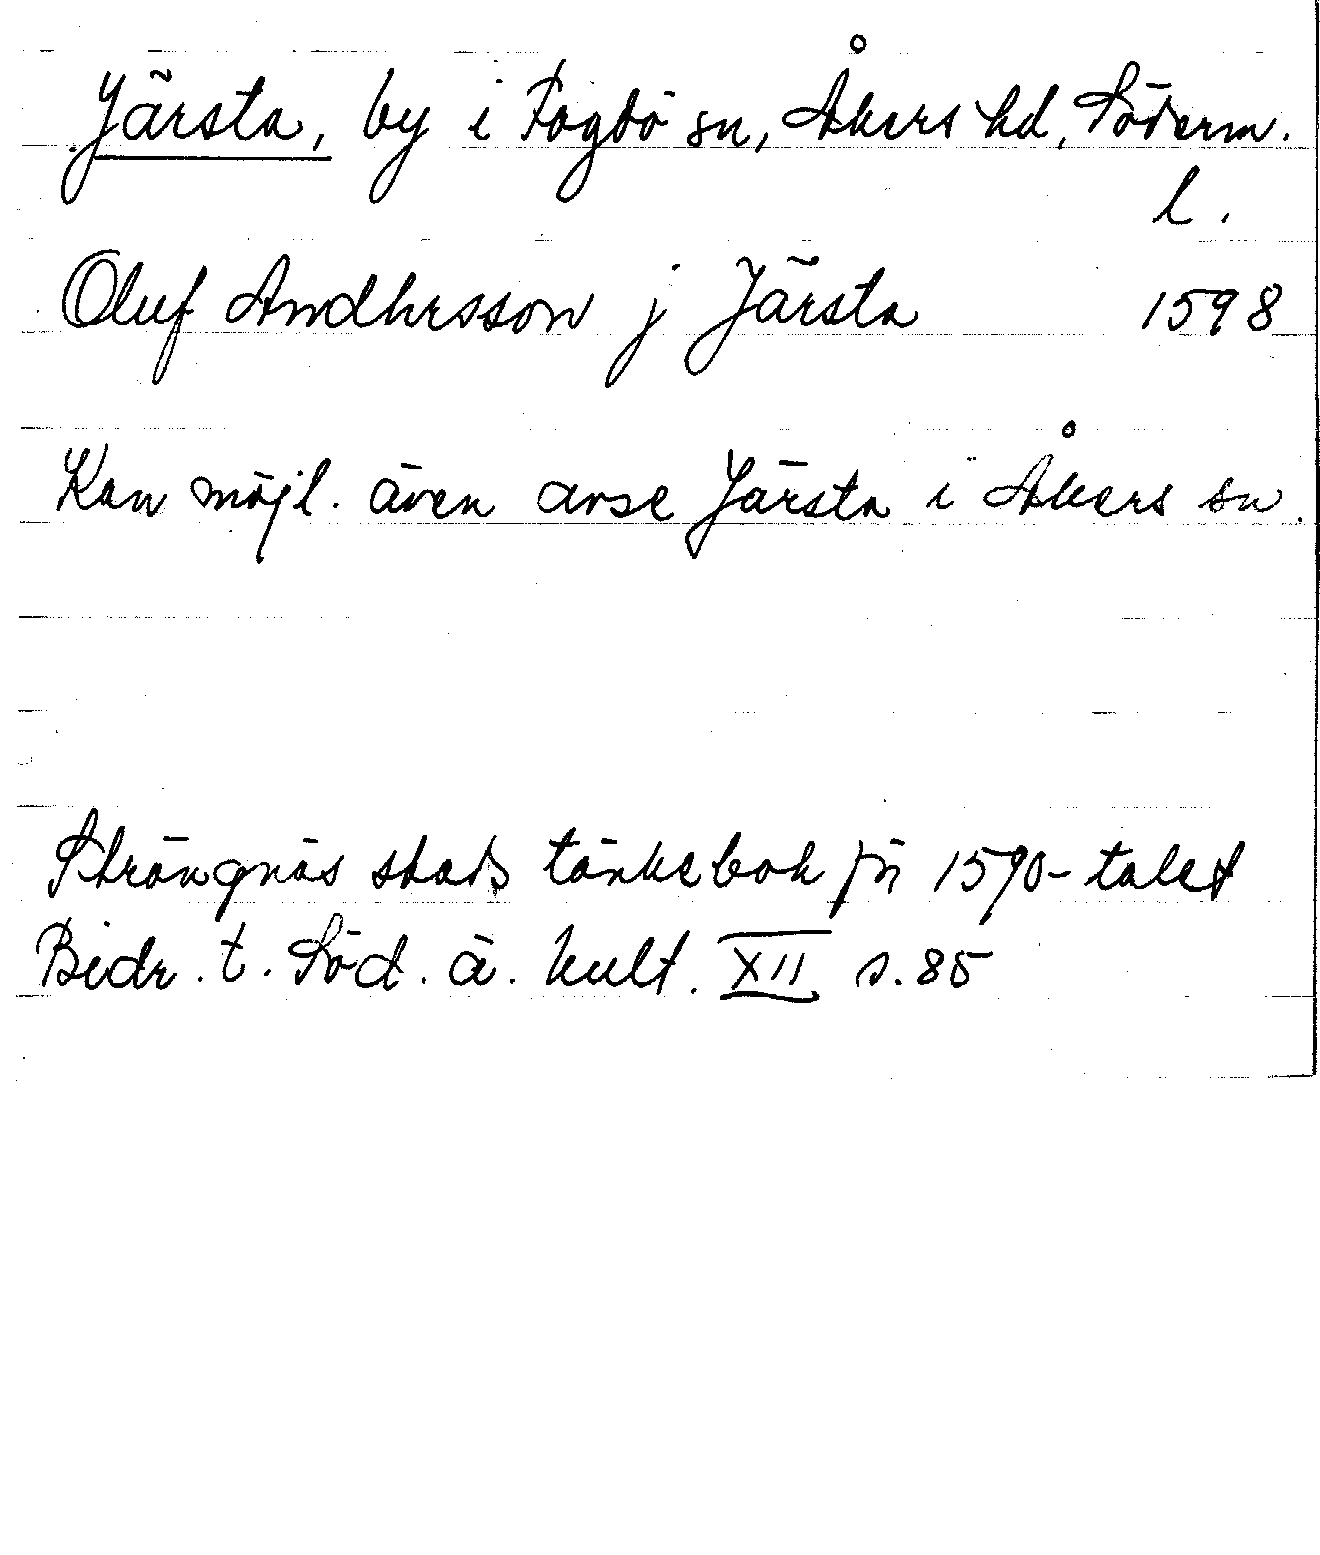 Järsta, by i Fogdö sn, Åkers hd, Söderm.
l.
Oluf Andhersson j Järsta 1598
Kan möjl. även avse Järsta i Åkers sn.
Strängnäs stads tänkebok från 1590-talet
Bidr. t. Söd. ä. kult. XII s. 85